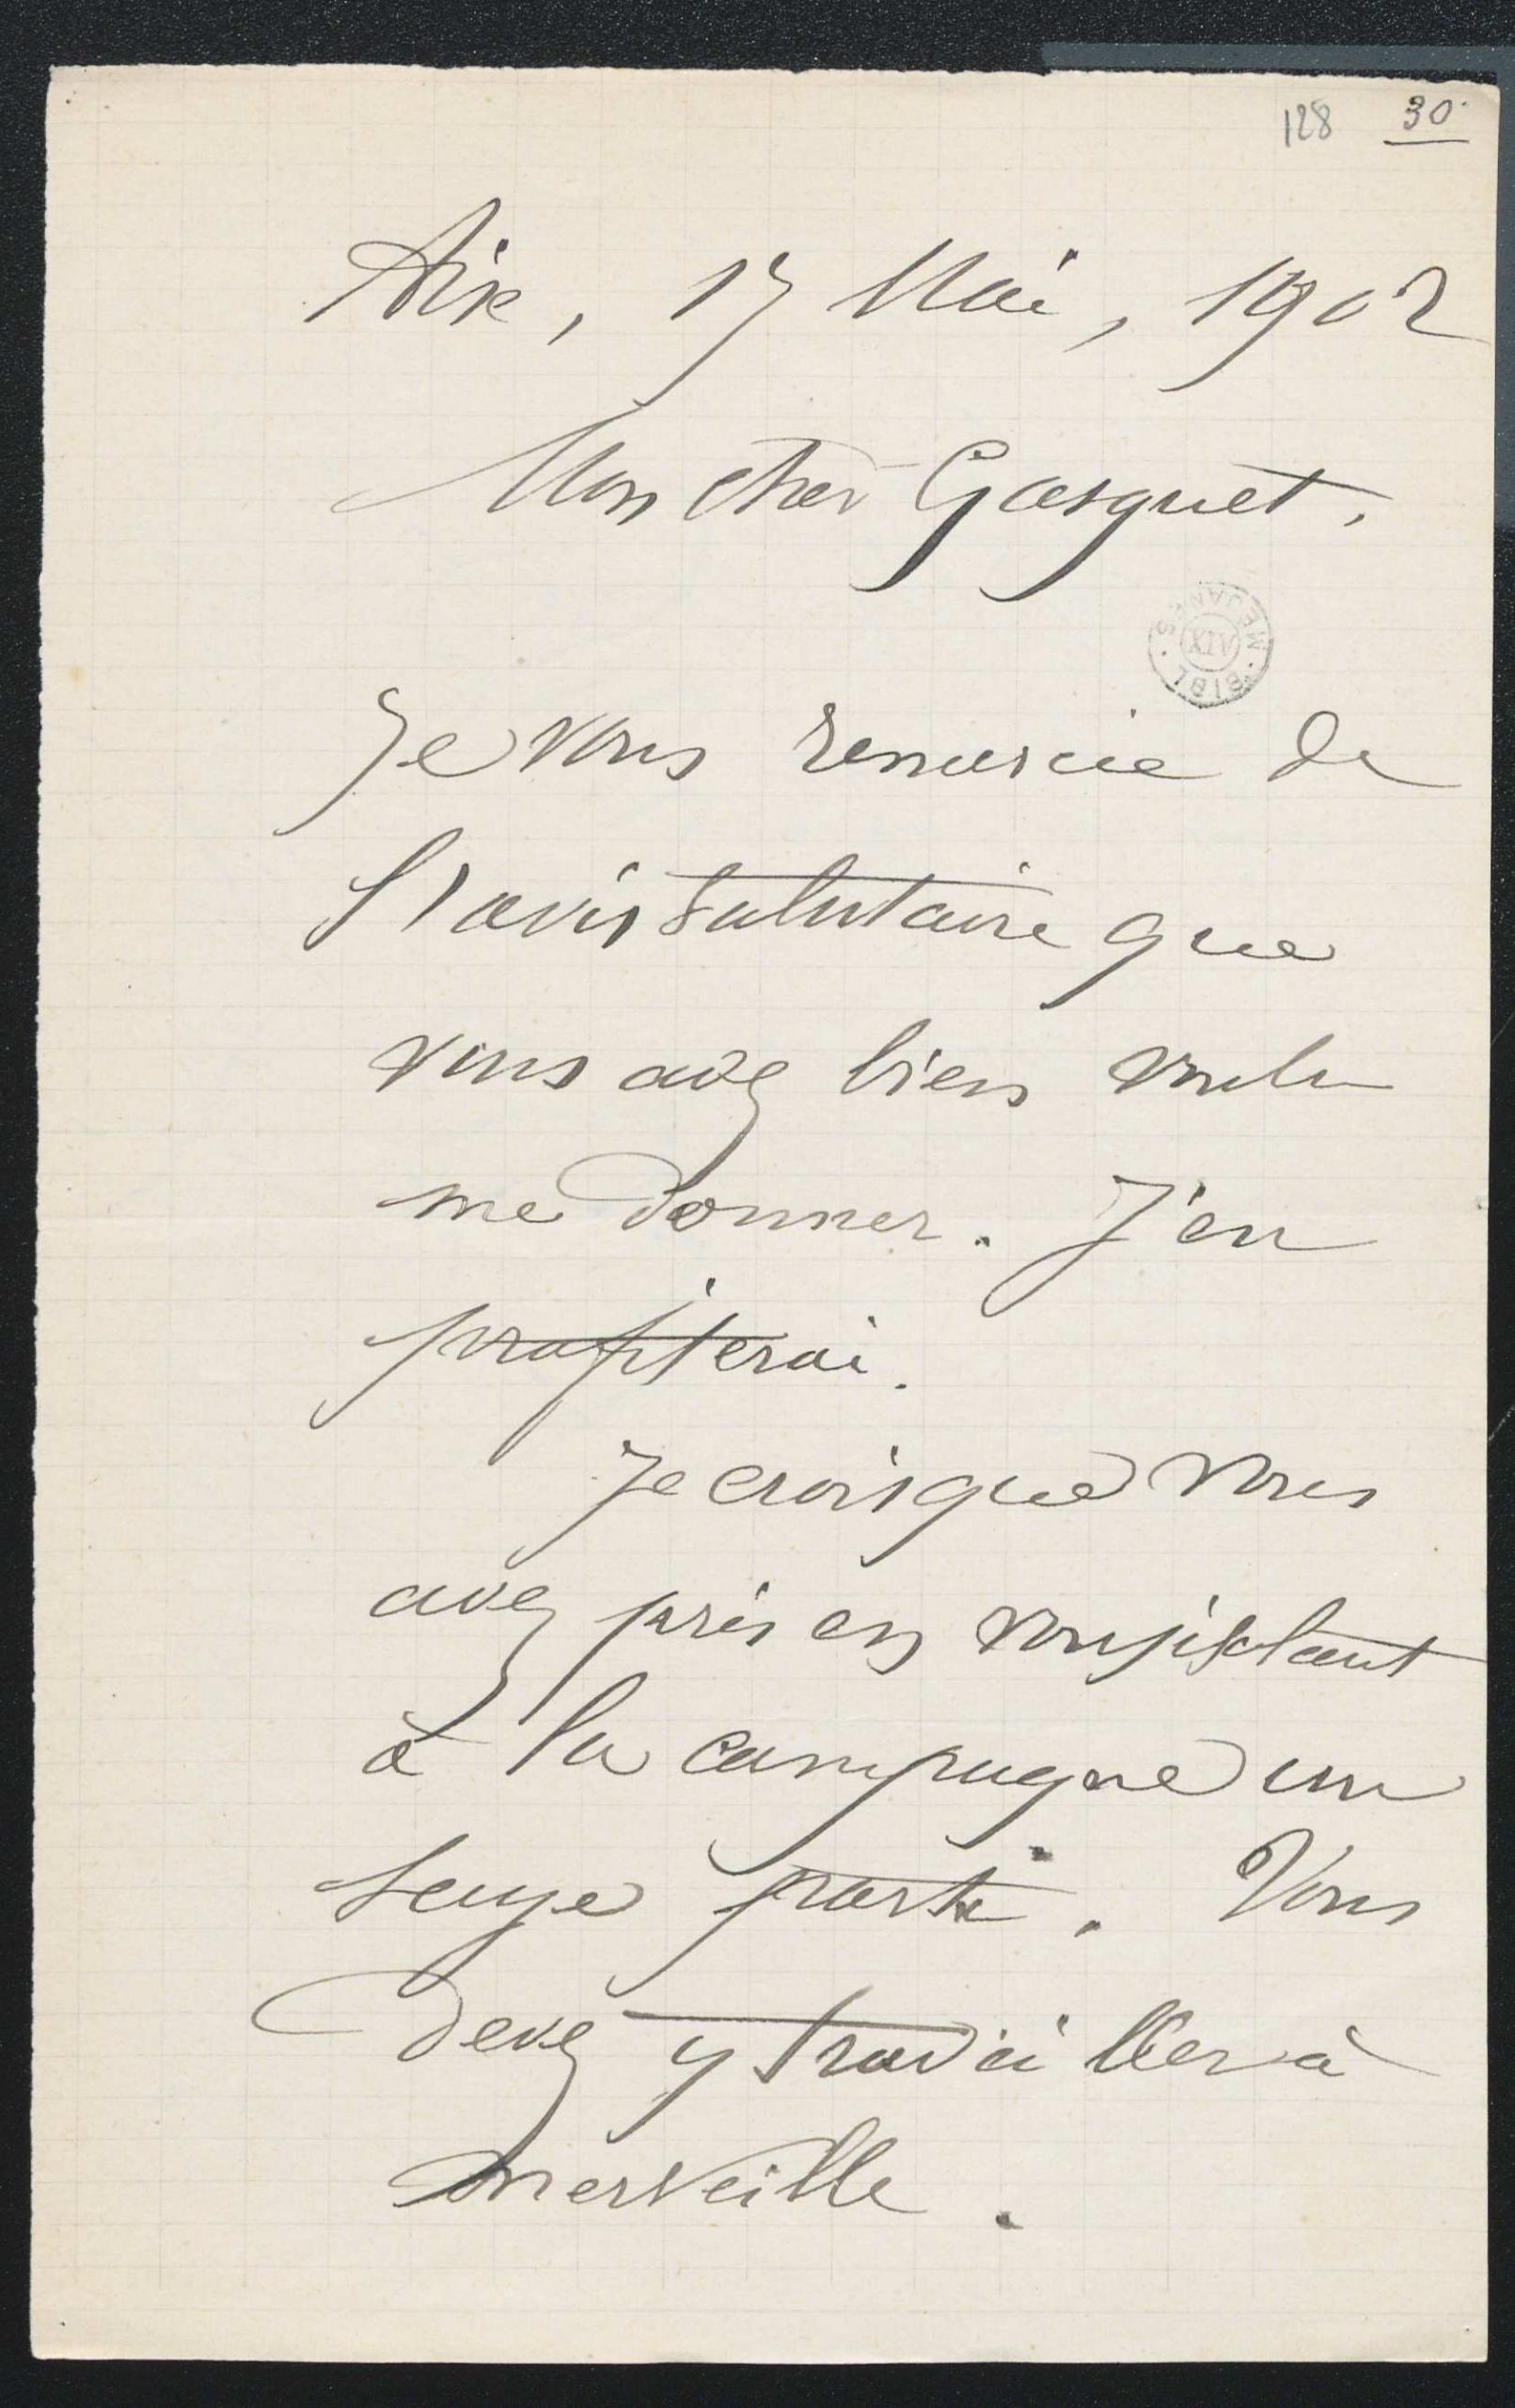 128 30
Aix, 17 Mai, 1902
Mon cher Gasquet,
BIBL. MEJANES. AIX
Je vous remercie de
l'avis salutaire que
vous avez bien voulu
me donner. J'en
profiterai.
Je crois que vous
avez pris en
à la campagne un
sage parti. Vous
devez y travailler à
merveille.